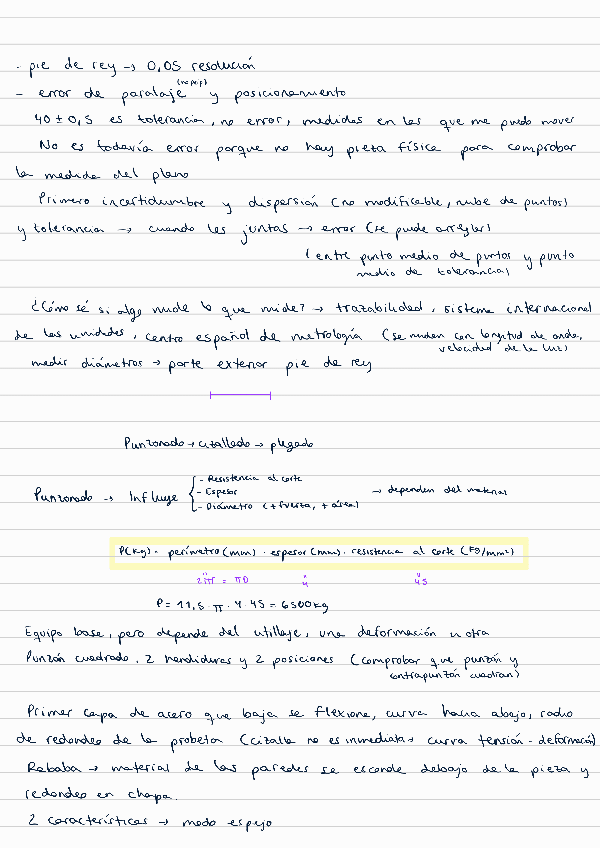 · pie de rey → 0,05 resolución
- error de paralaje y posicionamiento
40 ± 0,5 es tolerancia, no error, medidas en las que me puedo mover
No es todavía error porque no hay pieza física para comprobar
la medida del plano
Primero incertidumbre y dispersión (no modificable, nube de puntos)
y tolerancia → cuando les juntas → error (se puede arreglar)
(entre punto medio de puntos y punto
medio de tolerancia)
¿Cómo sé si algo mide lo que mide? → trazabilidad, sistema internacional
de las unidades, centro español de metrología (se miden con longitud de onda,
velocidad de la luz)
medir diámetros → parte exterior pie de rey
Punzonado → cizallado → plegado
Punzonado → Influye
- Resistencia al corte
- Espesor → dependen del material
- Diámetro (+ fuerza, + área)
P(kg) = perímetro (mm) · espesor (mm) · resistencia al corte (kg/mm²)
2πr = πD 4 45
P = 11,5 · π · 4 · 45 = 6500 kg
Equipo base, pero depende del utillaje, una deformación u otra
Punzón cuadrado, 2 hendiduras y 2 posiciones (comprobar que punzón y
contrapunzón cuadran)
Primer capa de acero que baja se flexiona, curva hacia abajo, radio
de redondeo de la probeta (cizalla no es inmediata → curva tensión - deformación)
Rebaba → material de las paredes se esconde debajo de la pieza y
redondeo en chapa.
2 características → modo espejo